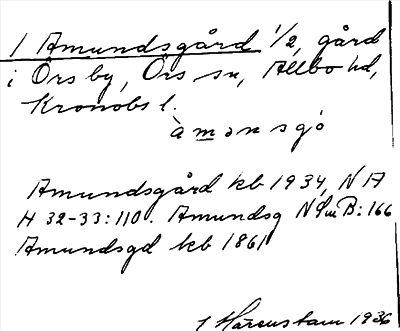 1 Amundsgård 1/2, gård
i Örsby, Örs sn, Allbo hd,
Kronobs l.
àmənsgó
Amundsgård kb 1934, NA
H 32-33:110. Amundsg NSmB:166
Amundsgd kb 1861
1 Mårtenstam 1936